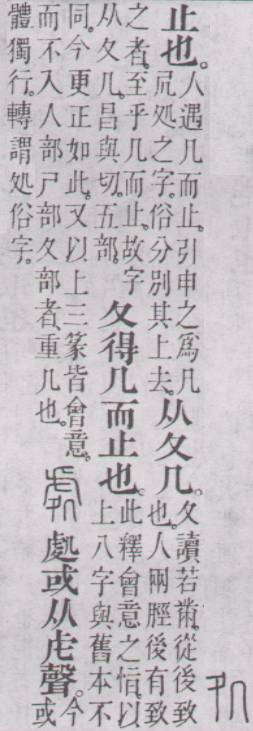 止也。人遇几而止。引申之爲凡
凥処之字。俗分別其上去。
从夂几。夂讀若黹。從後致
也。人兩脛後有致
之者。至乎几而止。故字
从夂几。昌與切。五部。
夂得几而止也。此釋會意之恉。以
上八字與舊本不
同。今更正如此。又以上三篆皆會意。
而不入人部尸部夂部者、重几也。
處或从虍聲。今
或
體獨行。轉謂処俗字。